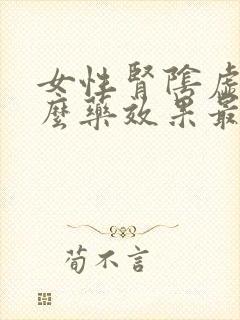 女性腎陰虛
麼藥效果最
荀不言